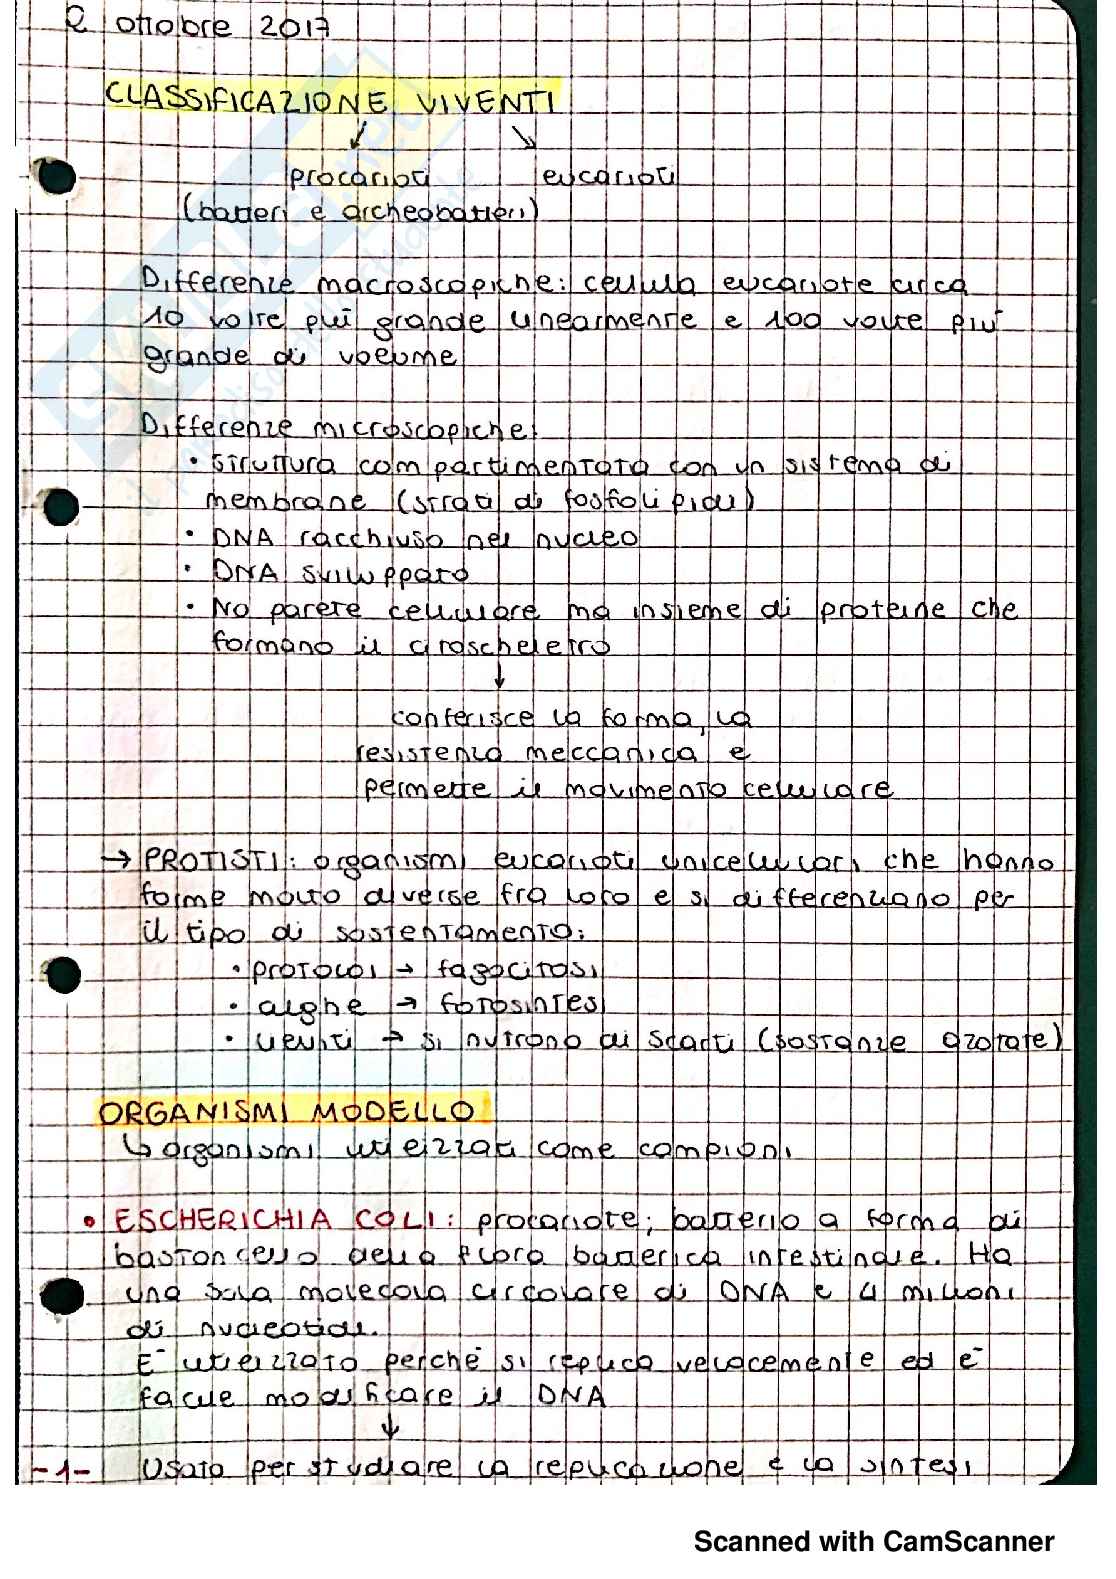 2 ottobre 2017
CLASSIFICAZIONE VIVENTI
↙ ↘
procarioti eucarioti
(batteri e archeobatteri)
Differenze macroscopiche: cellula eucariote circa
10 volte più grande linearmente e 100 volte più
grande di volume
Differenze microscopiche:
• Struttura compartimentata con un sistema di
membrane (strati di fosfolipidi)
• DNA racchiuso nel nucleo
• DNA sviluppato
• No parete cellulare ma insieme di proteine che
formano il citoscheletro
↓
conferisce la forma, la
resistenza meccanica e
permette il movimento cellulare
→ PROTISTI: organismi eucarioti unicellulari che hanno
forme molto diverse fra loro e si differenziano per
il tipo di sostentamento:
• protozoi → fagocitosi
• alghe → fotosintesi
• lieviti → si nutrono di scarti (sostanze azotate)
ORGANISMI MODELLO
↳ organismi utilizzati come campioni
• ESCHERICHIA COLI: procariote; batterio a forma di
bastoncello della flora batterica intestinale. Ha
una sola molecola circolare di DNA e 4 milioni
di nucleotidi.
E' utilizzato perché si replica velocemente ed è
facile modificare il DNA
↓
-1- Usato per studiare la replicazione e la sintesi
Scanned with CamScanner